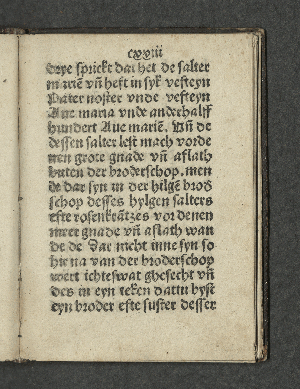 cxxiii
drye sprickt dat het de salter
marien vñ heft in syk vesteyn
Pater noster vnde vesteyn
Aue maria vnde anderhalff
hundert Aue mariē. Vñ de
dessen salter lest mach vorde
nen grote gnade vñ aflath
buten der broderschop. men
de dar syn in der hilgē brod
schop desses hylgen salters
efte rosenkrātzes vordenen
meer gnade vñ aflath wan
de de Dar nicht inne syn so
hir na van der broderschop
wert ichteswat ghesecht vñ
des in eyn teken dattu byst
eyn broder efte suster desser